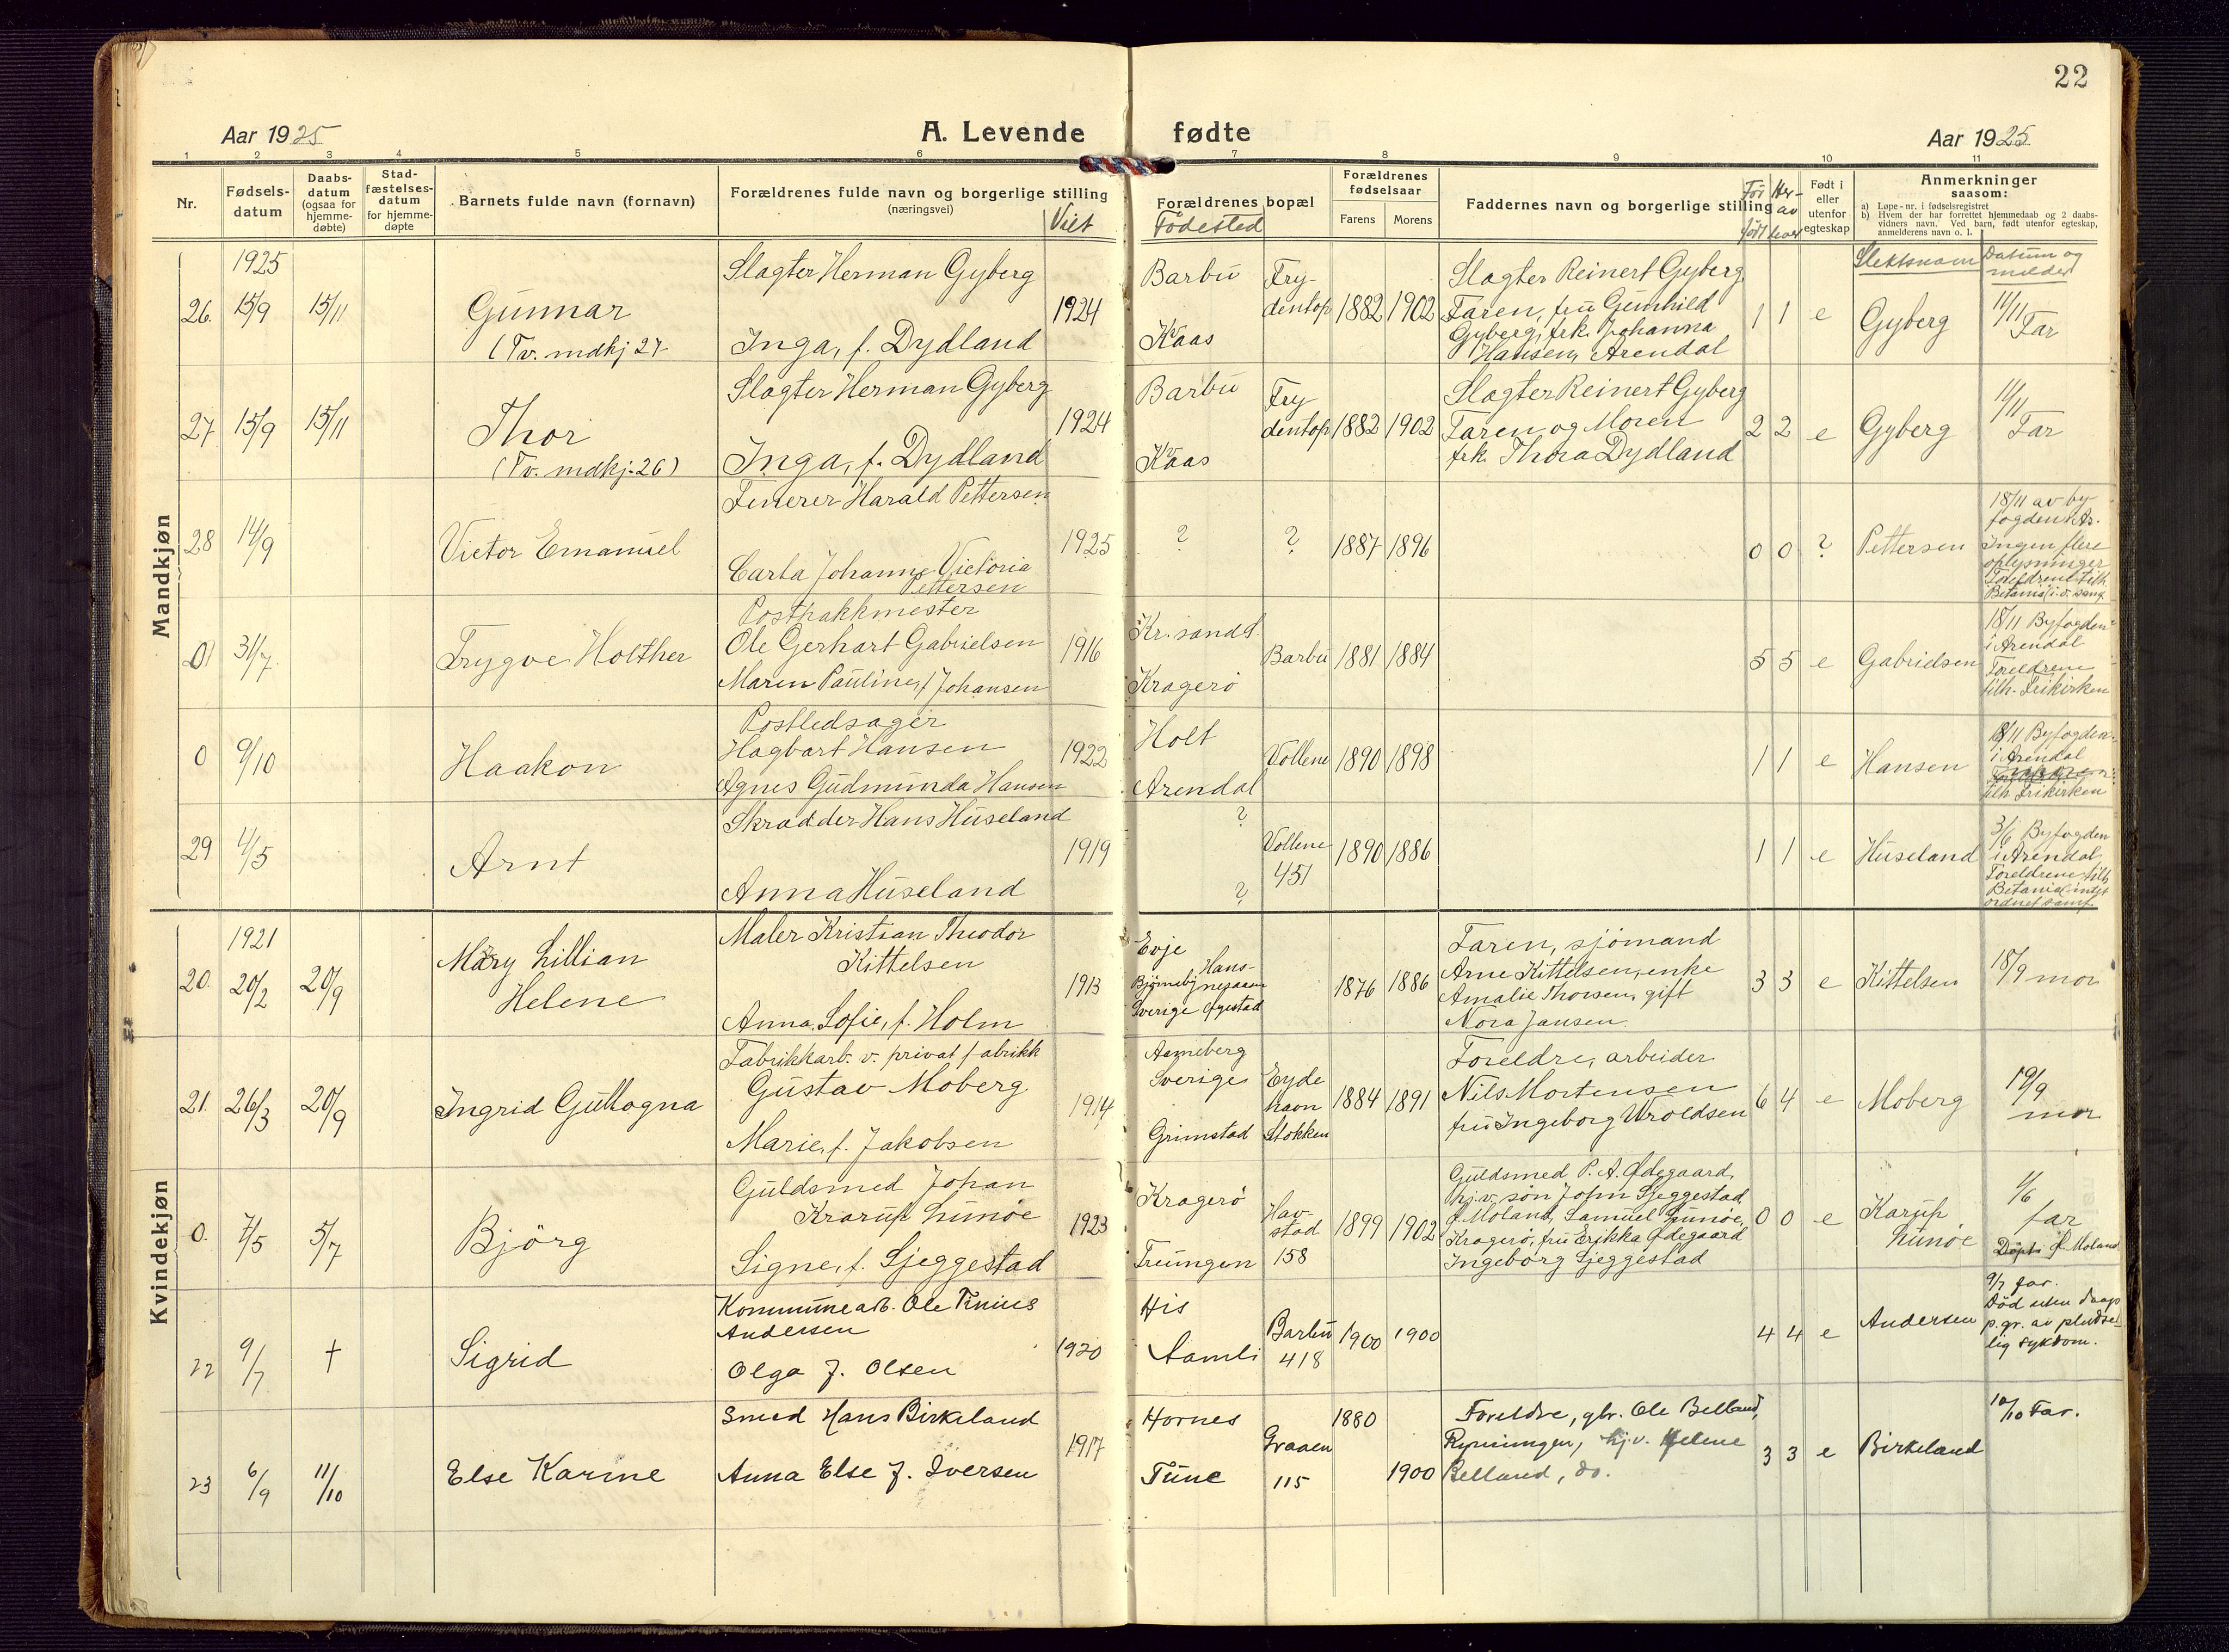 22
Aar 1925
A. Levende fødte
Aar 1925
1 2 3 4 5 6 7 8 9 10 11
Nr.
Fødsels-
datum
Daabs-
datum
(ogsaa for
hjemme-
døbte)
Stad-
fæstelses-
datum
for hjemme-
døpte
Barnets fulde navn (fornavn)
Forældrenes fulde navn og borgerlige stilling
(næringsvei)
Viet
Forældrenes bopæl
Fødested
Forældrenes
fødselsaar
Farens Morens
Faddernes navn og borgerlige stilling
Før
født
Her-
av
lever
Født i
eller
utenfor
egteskap
Anmerkninger
saasom:
a) Løpe-nr. i fødselsregistret
b) Hvem der har forrettet hjemmedaab og 2 daabs-
vidners navn. Ved barn, født utenfor egteskap,
anmelderens navn o. l.
Slektsnavn
Datum og
melder
Mandkjøn
1925
26. 15/9 15/11
Gunnar
(Tv. mdkj 27
Slagter Herman Gyberg
Inga, f. Dydland
1924
Barbu
Kvaas
Fry-
dentop
1882 1902
Slagter Reinert Gyberg
Faren, fru Gunhild
Gyberg, frk. Johanna
Hansen, Arendal
1 1 e
Gyberg
11/11
Far
27 15/9 15/11
Thor
(Tv. mdkj. 26)
Slagter Herman Gyberg
Inga, f. Dydland
1924
Barbu
Kvaas
Fry
dentop
1882 1902
Slagter Reinert Gyberg
Faren og Moren
frk. Thora Dydland
2 2 e
Gyberg
11/11
Far
28 14/9
Victor Emanuel
Feierer Harald Pettersen
Carla Johanne Victoria
Pettersen
1925
? ?
1887 1896
0 0 ?
Pettersen
18/11 av by-
fogden i Ar.
Ingen flere
oplysninger
Foreldrene tilh.
0 31/7
Trygve Holther
Postpakkmester
Ole Gerhart Gabrielsen
Maren Pauline, f Johansen
1916
Kr.sand
Kragerø
Barbu
1881 1884
5 5 e
Gabrielsen
18/11 Byfogden
i Arendal
Foreldrene
tilh. Frikirken
0 9/10
Haakon
Postledsager
Hagbart Hansen
Agnes Gudmunda Hansen
1922
Holt
Arendal
Vollene
1890 1898
1 1 e
Hansen
18/11 Byfogden
i Arendal
tilh. Frikirken
29 4/5
Arnt
Skrædder Hans Huseland
Anna Huseland
1919
?
?
Vollene
451
1890 1886
1 1 e
Huseland
3/6 Byfogden
i Arendal,
Foreldrene tilh.
Betania (intet
ordnet samf.
Kvindekjøn
1921
20. 20/2 20/9
Mary Lillian
Helene
Maler Kristian Theodor
Kittelsen
Anna Sofie, f. Holm
1913
Evje
Bjørneby
Sverige
Hans-
nesaasen
Øyestad
1876 1886
Faren, sjømand
Arne Kittelsen, enke
Amalie Thorsen, gift
Nora Jansen
3 3 e
Kittelsen
18/9 mor
21. 26/3 20/9
Ingrid Gullogna
Fabrikkarb. v. privat fabrikk
Gustav Moberg
Marie, f. Jakobsen
1914
Asmeberg
Sverige
Grimstad
Eyde
havn
Stokken
1884 1891
Foreldre, arbeider
Nils Mortensen
fru Ingeborg Uroldsen
6 4 e
Moberg
19/9
mor
0. 7/5 5/7
Bjørg
Guldsmed Johan
Krarup Lunøe
Signe, f. Sjeggestad
1923
Kragerø
Treungen
Hav-
stad
158
1899 1902
Guldsmed P. A. Ødegaard,
hj.v. søn John Sjeggestad
Ø. Moland, Samuel Lunøe,
Kragerø, fru Erikka Ødegaard
Ingeborg Sjeggestad
0 0 e
Karup
Lunøe
1/6
far
Døpt i Ø. Moland
22 9/7 †
Sigrid
Kommunearb. Ole Tinius
Andersen
Olga f. Olsen
1920
His
Aamli
Barbu
418
1900 1900
4 4 e
Andersen
9/7 far.
Død uten daap
p.gr. av pludse-
lig sykdom.
23 6/9 11/10
Else Karine
Smed Hans Birkeland
Anna Else f. Iversen
1917
Hornes
Tune
Graaen
115
1880
1900
Foreldre, gbr. Ole Belland,
hj.v. Helene
Belland, do.
3 3 e
Birkeland
10/10 Far.